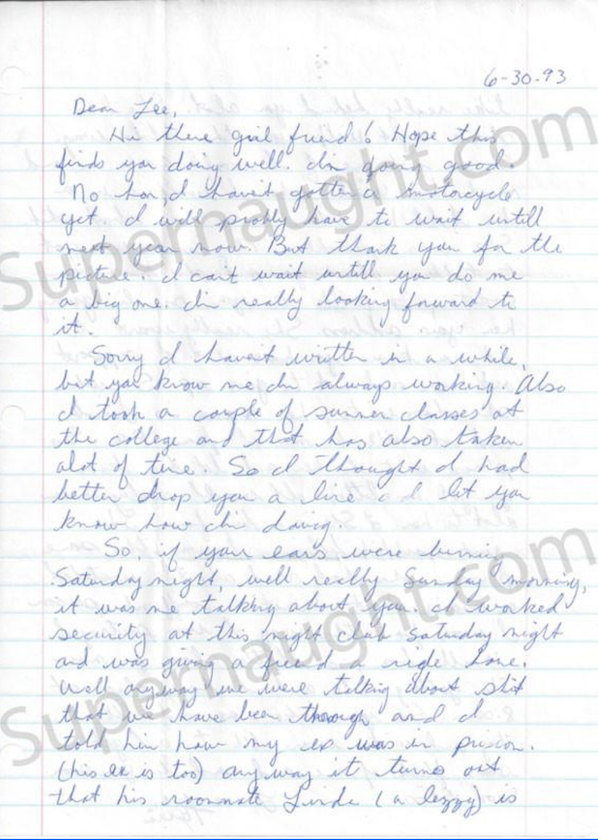 6-30-93
Dear Lee,
Hi there girl friend! Hope this
finds you doing well. I'm going good.
No hon, I havent gotten a motorcycle
yet. I will probly have to wait untill
next year now. But thank you for the
picture. I cant wait untill you do me
a big one. I'm really looking forward to
it.
Sorry I havent written in a while,
but you know me I'm always working. Also
I took a couple of summer classes at
the college and that has also taken
alot of time. So I thought I had
better drop you a line and let you
know how I'm doing.
So, if your ears were burning
Saturday night, well really Sunday morning,
it was me talking about you. I worked
security at this night club Saturday night
and was giving a friend a ride home.
Well anyway we were talking about shit
that we have been through and I
told him how my ex was in prison.
(his ex is too) anyway it turns out
that his roommate Linda (a lezzy) is
Supernaught.com
Supernaught.com
Supernaught.com